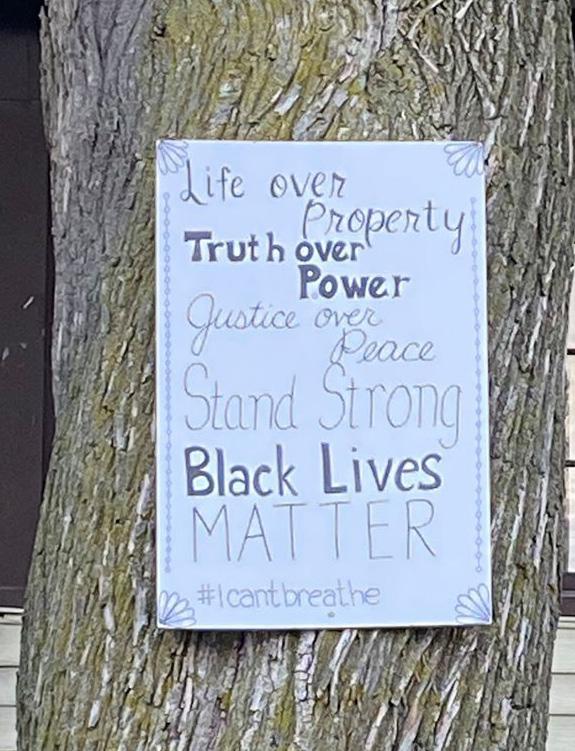 Life over
Property
Truth over
Power
Justice over
Peace
Stand Strong
Black Lives
MATTER
#Icantbreathe